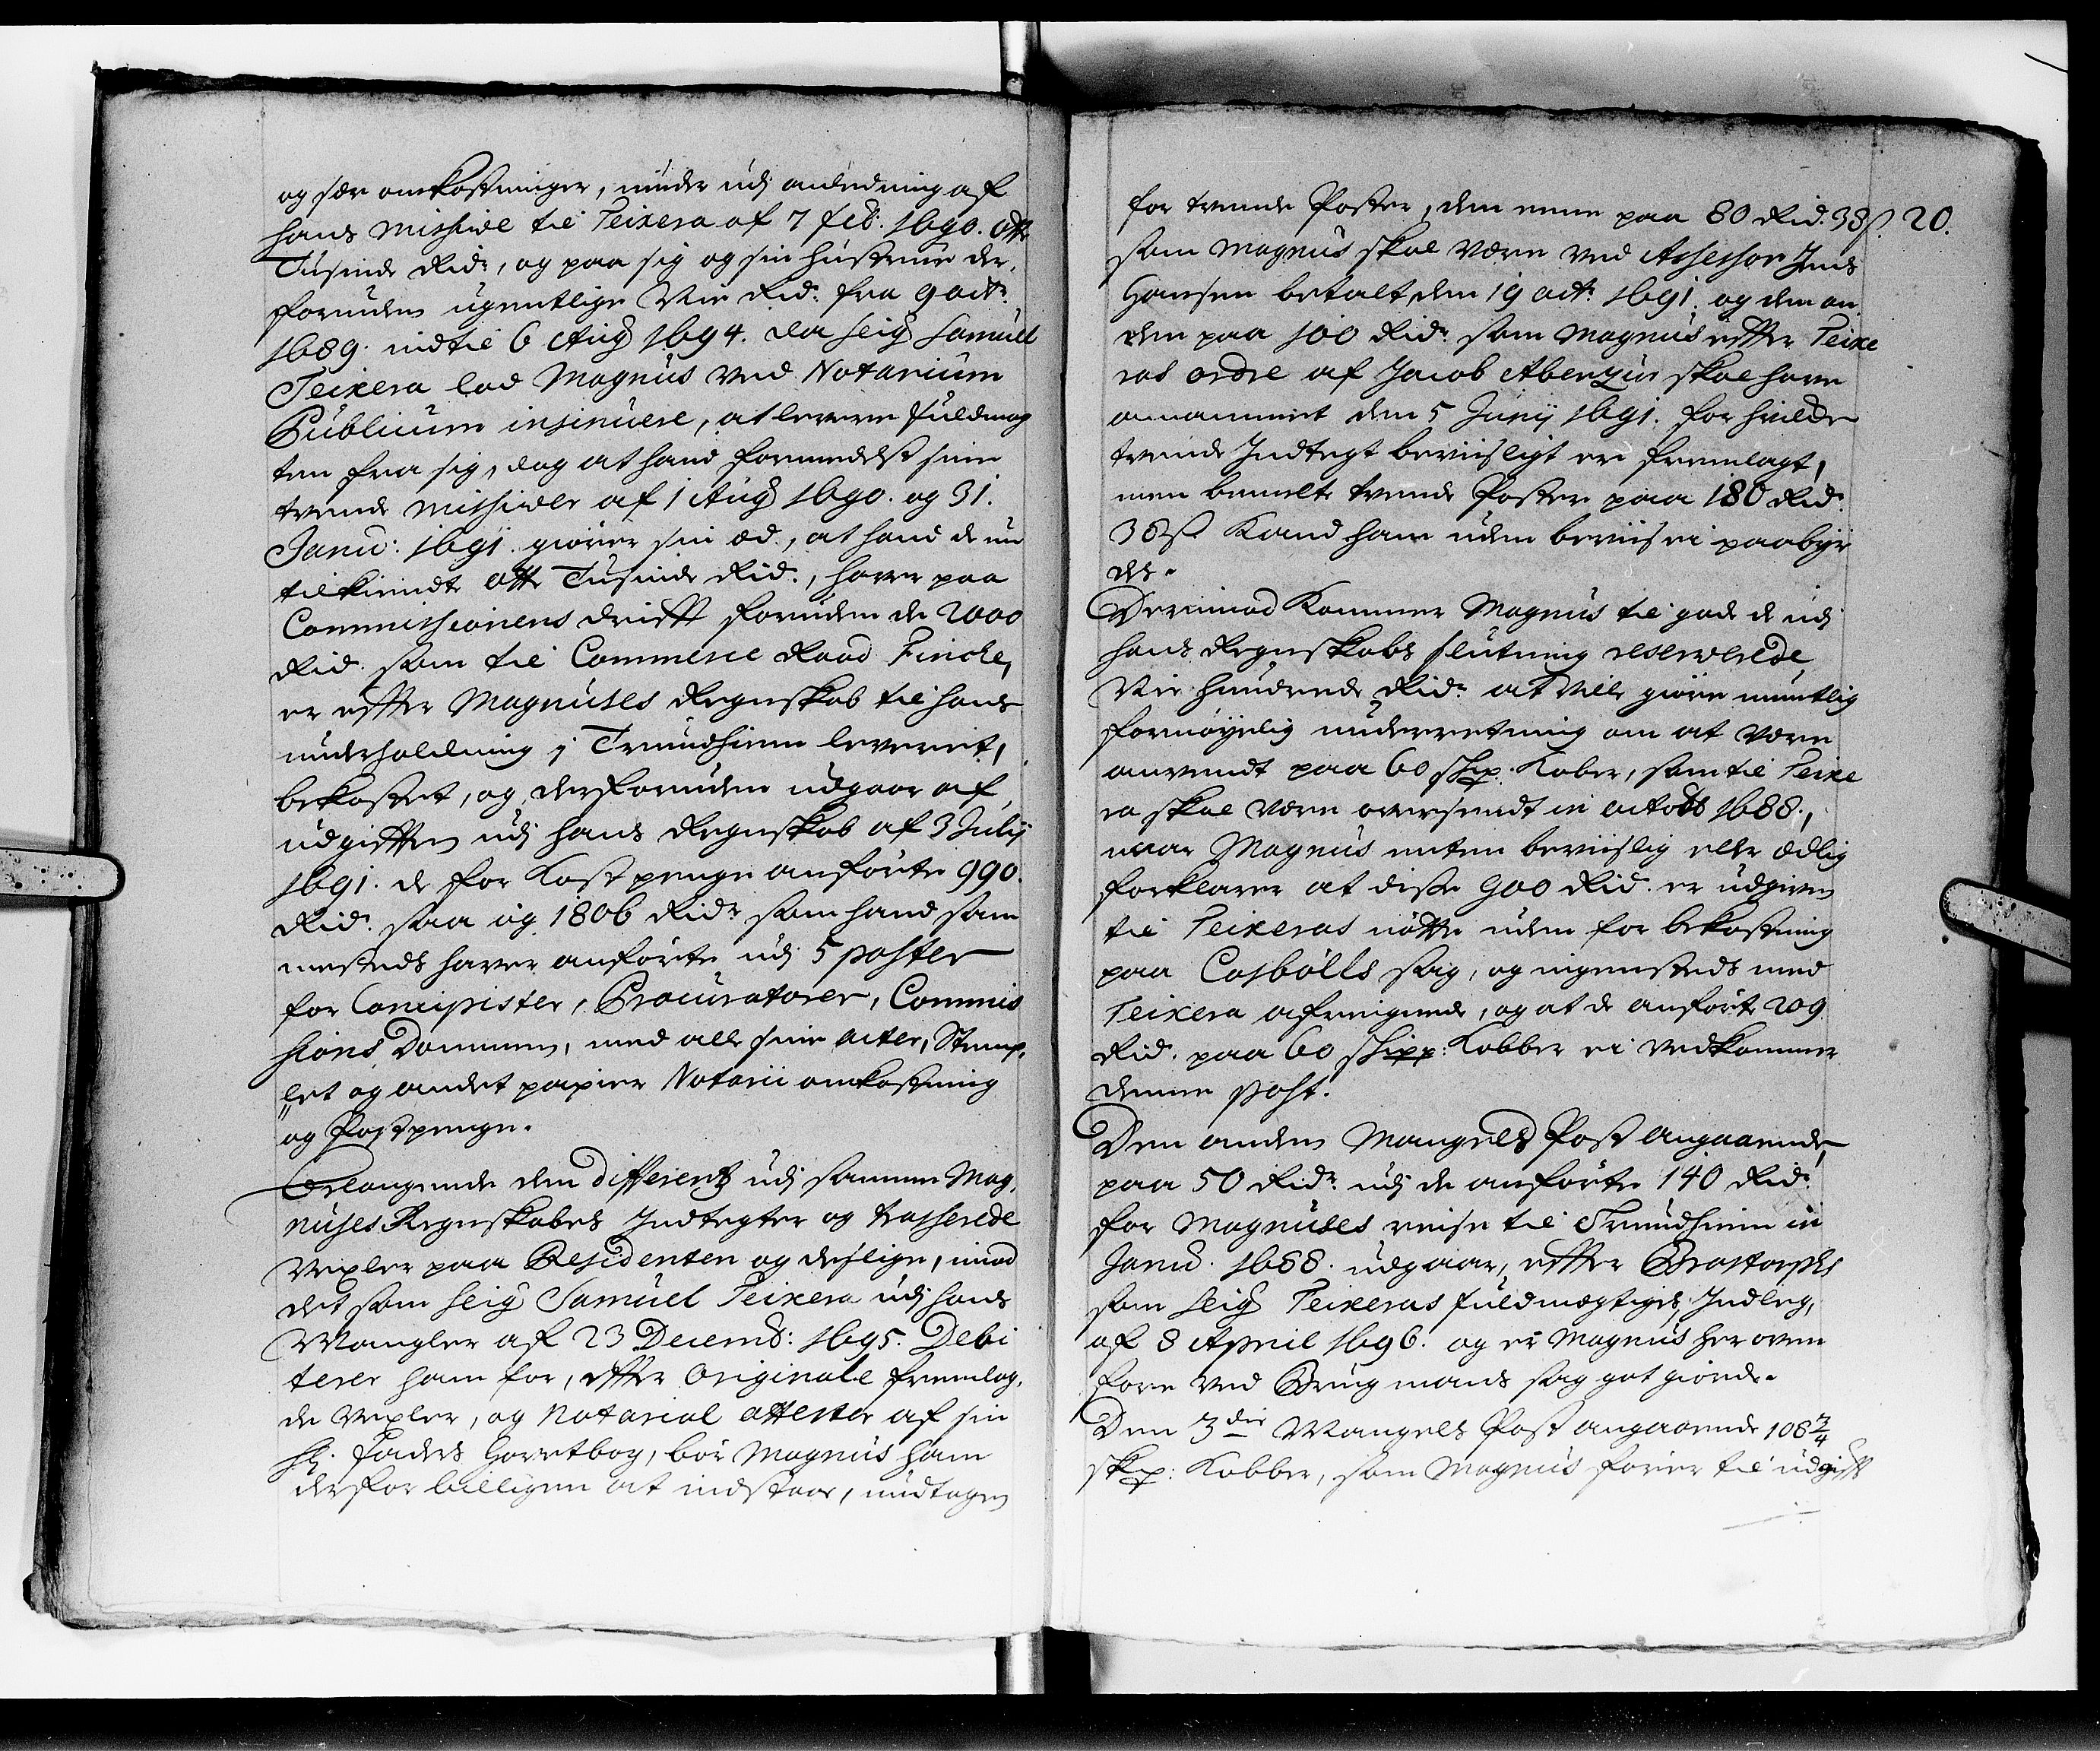 og sær omkostninger, under udj anledning af
hans missive til Teixera af 7 feb: 1690. Otte
Tusinde Rid:, og paa sig og sin hustrue der,
foruden ugentlige Vie Rid: fra 9 oct:
1689. indtil 6 Aug 1694. da Seig Samuel
Teixera lod Magnus ved Notarium
Publicum insinuere, at levere fuldmag
ten fra sig, dog at hand formedelst sine
tvende missiver af 1 Aug 1690. og 31.
Janu: 1691. giører sin æd, at hand de nu
tilkiendte Otte Tusinde Rid:, haver paa
Commissionens drifft foruden de 2000
Rid. som til Commerce Raad Fincke,
er effter Magnuses Regnskab til hans
underholdning i Trundhiem leveret,
bekostet, og derforuden udgaar af
udgifften udj hans Regnskab af 3 Julij
1691. de for Kostpenge anførte 990.
Rid: saa og 1806 Rid: som hand sam
mesteds haver anførte udj 5 poster
for Concipister, Procuratorer, Commis
sions Dommen, med alle sine acter, Stemp,
let og andet papier Notarii omkostning
og Postpenge.
Belangende den differentz udj samme Mag,
nuses Regnskabes Indtegter og trasserede
Vexler paa Residenten og desligen, imod
det som Seig Samuel Teixera udj hans
Mangler af 23 Decemb: 1695. Debi
terer ham for, effter Originale fremlag,
de Vexler, og Notarial attester af sin
Sl. Faders Hovetbog, bør Magnus ham
derfor billigen at indstaae, undtagen
for tvende Poster, den eene paa 80 Rid. 38 ß. 20.
som Magnus skal være ved Assessor Jens
Hansen betalt den 19 oct: 1691. og den an
den paa 100 Rid: som Magnus effter Teixe
ras ordre af Jacob Abenzur skal have
annammet den 5 Junij 1691. for hvilcke
tvende Indtegt bevisligt er fremlagt,
men bemelte tvende Poster paa 180 Rid.
38 ß Kand ham uden beviis ei paabyr
des.
Derimod Kommer Magnus til gode de udj
hans Regnskabs slutning reserverede
Nie hundrede Rid: at ville giøre mundtlig
fornøyelig underretning om at være
anvendt paa 60 Skp: Kober, som til Teixe
ra skal være oversendt in octobr 1688.,
naar Magnus enten beviislig eller ædlig
forklarer at disse 900 Rid. er udgiven
til Teixeras nøtte uden for bekostning
paa Casbølls sag, og ingensteds med
Teixera afreignede, og at de anførte 209
Rid. paa 60 Skpp: Kobber ei vedkommer
denne post.
Den anden Mangels Post angaaende,
paa 50 Rid: udj de anførte 140 Rid:
for Magnuses reise til Trundhiem in
Janu. 1688. udgaar, effter Brostorphs
som Seig Teixeras fuldmægtiges Indleg,
af 8 April 1696. og er Magnus her oven
fore ved Brugmans sag got giorde.
Den 3die Mangels Post angaaende 108 3/4
Skp: Kobber, som Magnus fører til udgifft